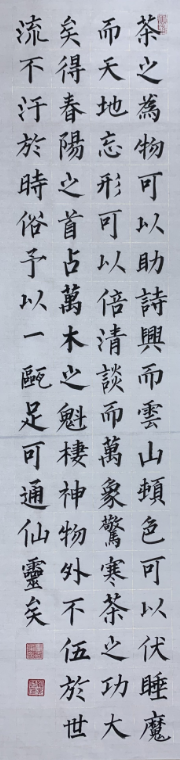 茶之為物可以助詩興而雲山頓色可以伏睡魔
而天地忘形可以倍清談而萬象驚寒茶之功大
矣得春陽之首占萬木之魁棲神物外不伍於世
流不汙於時俗予以一甌足可通仙靈矣